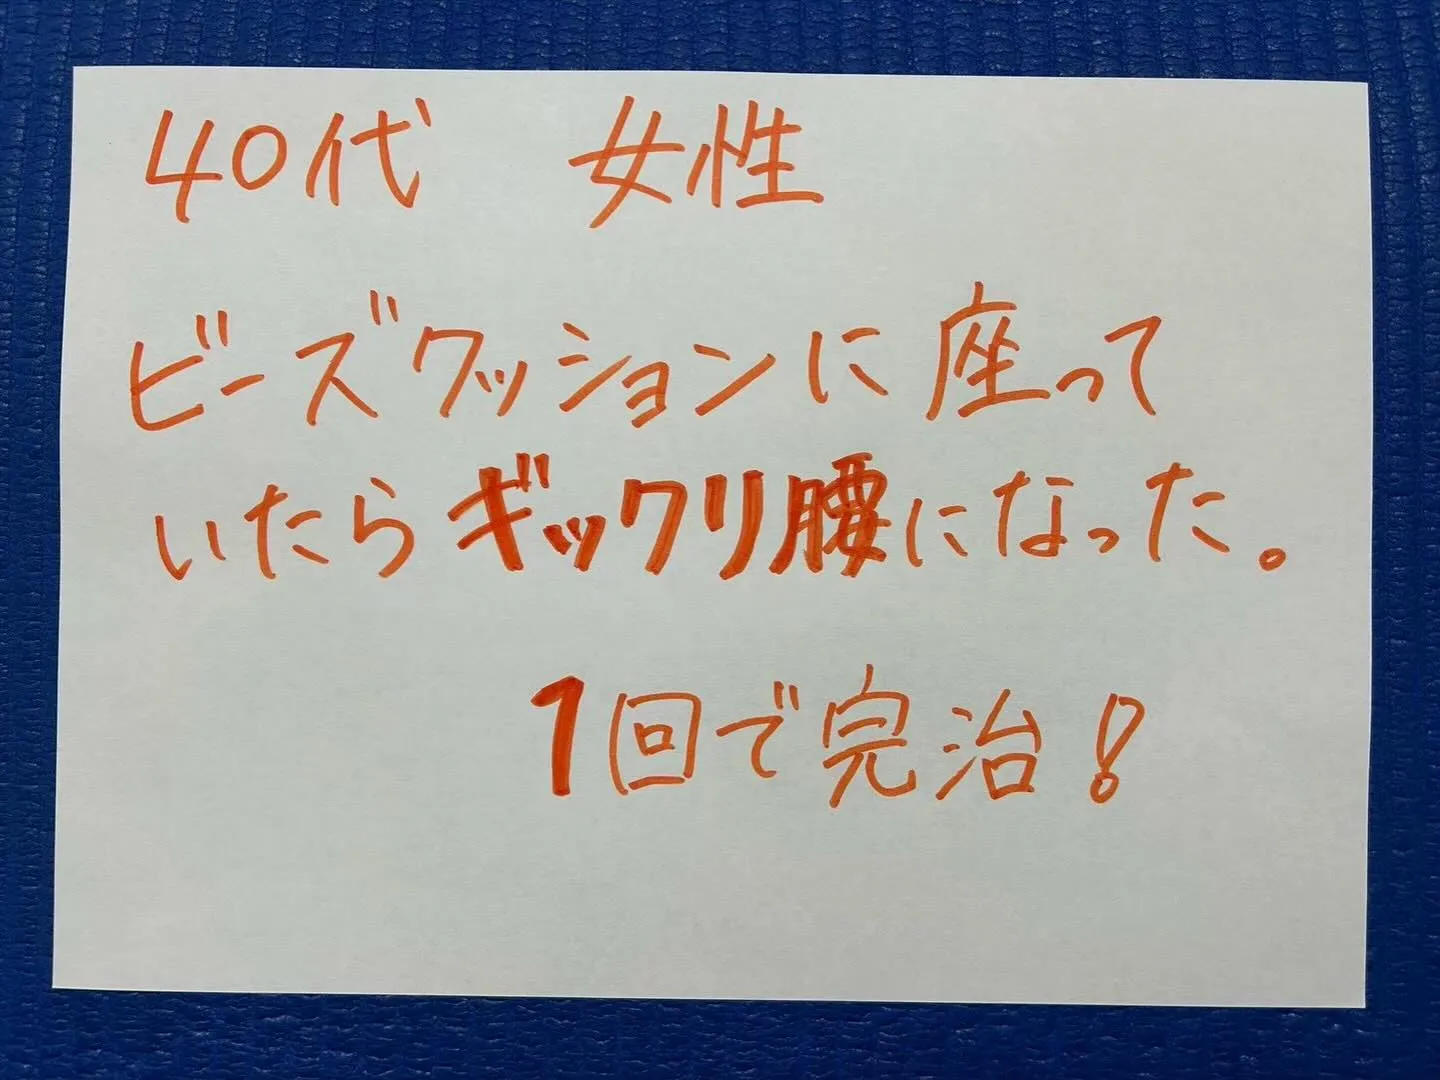 40代 女性
ビーズクッションに座って
いたらギックリ腰になった。
1回で完治!